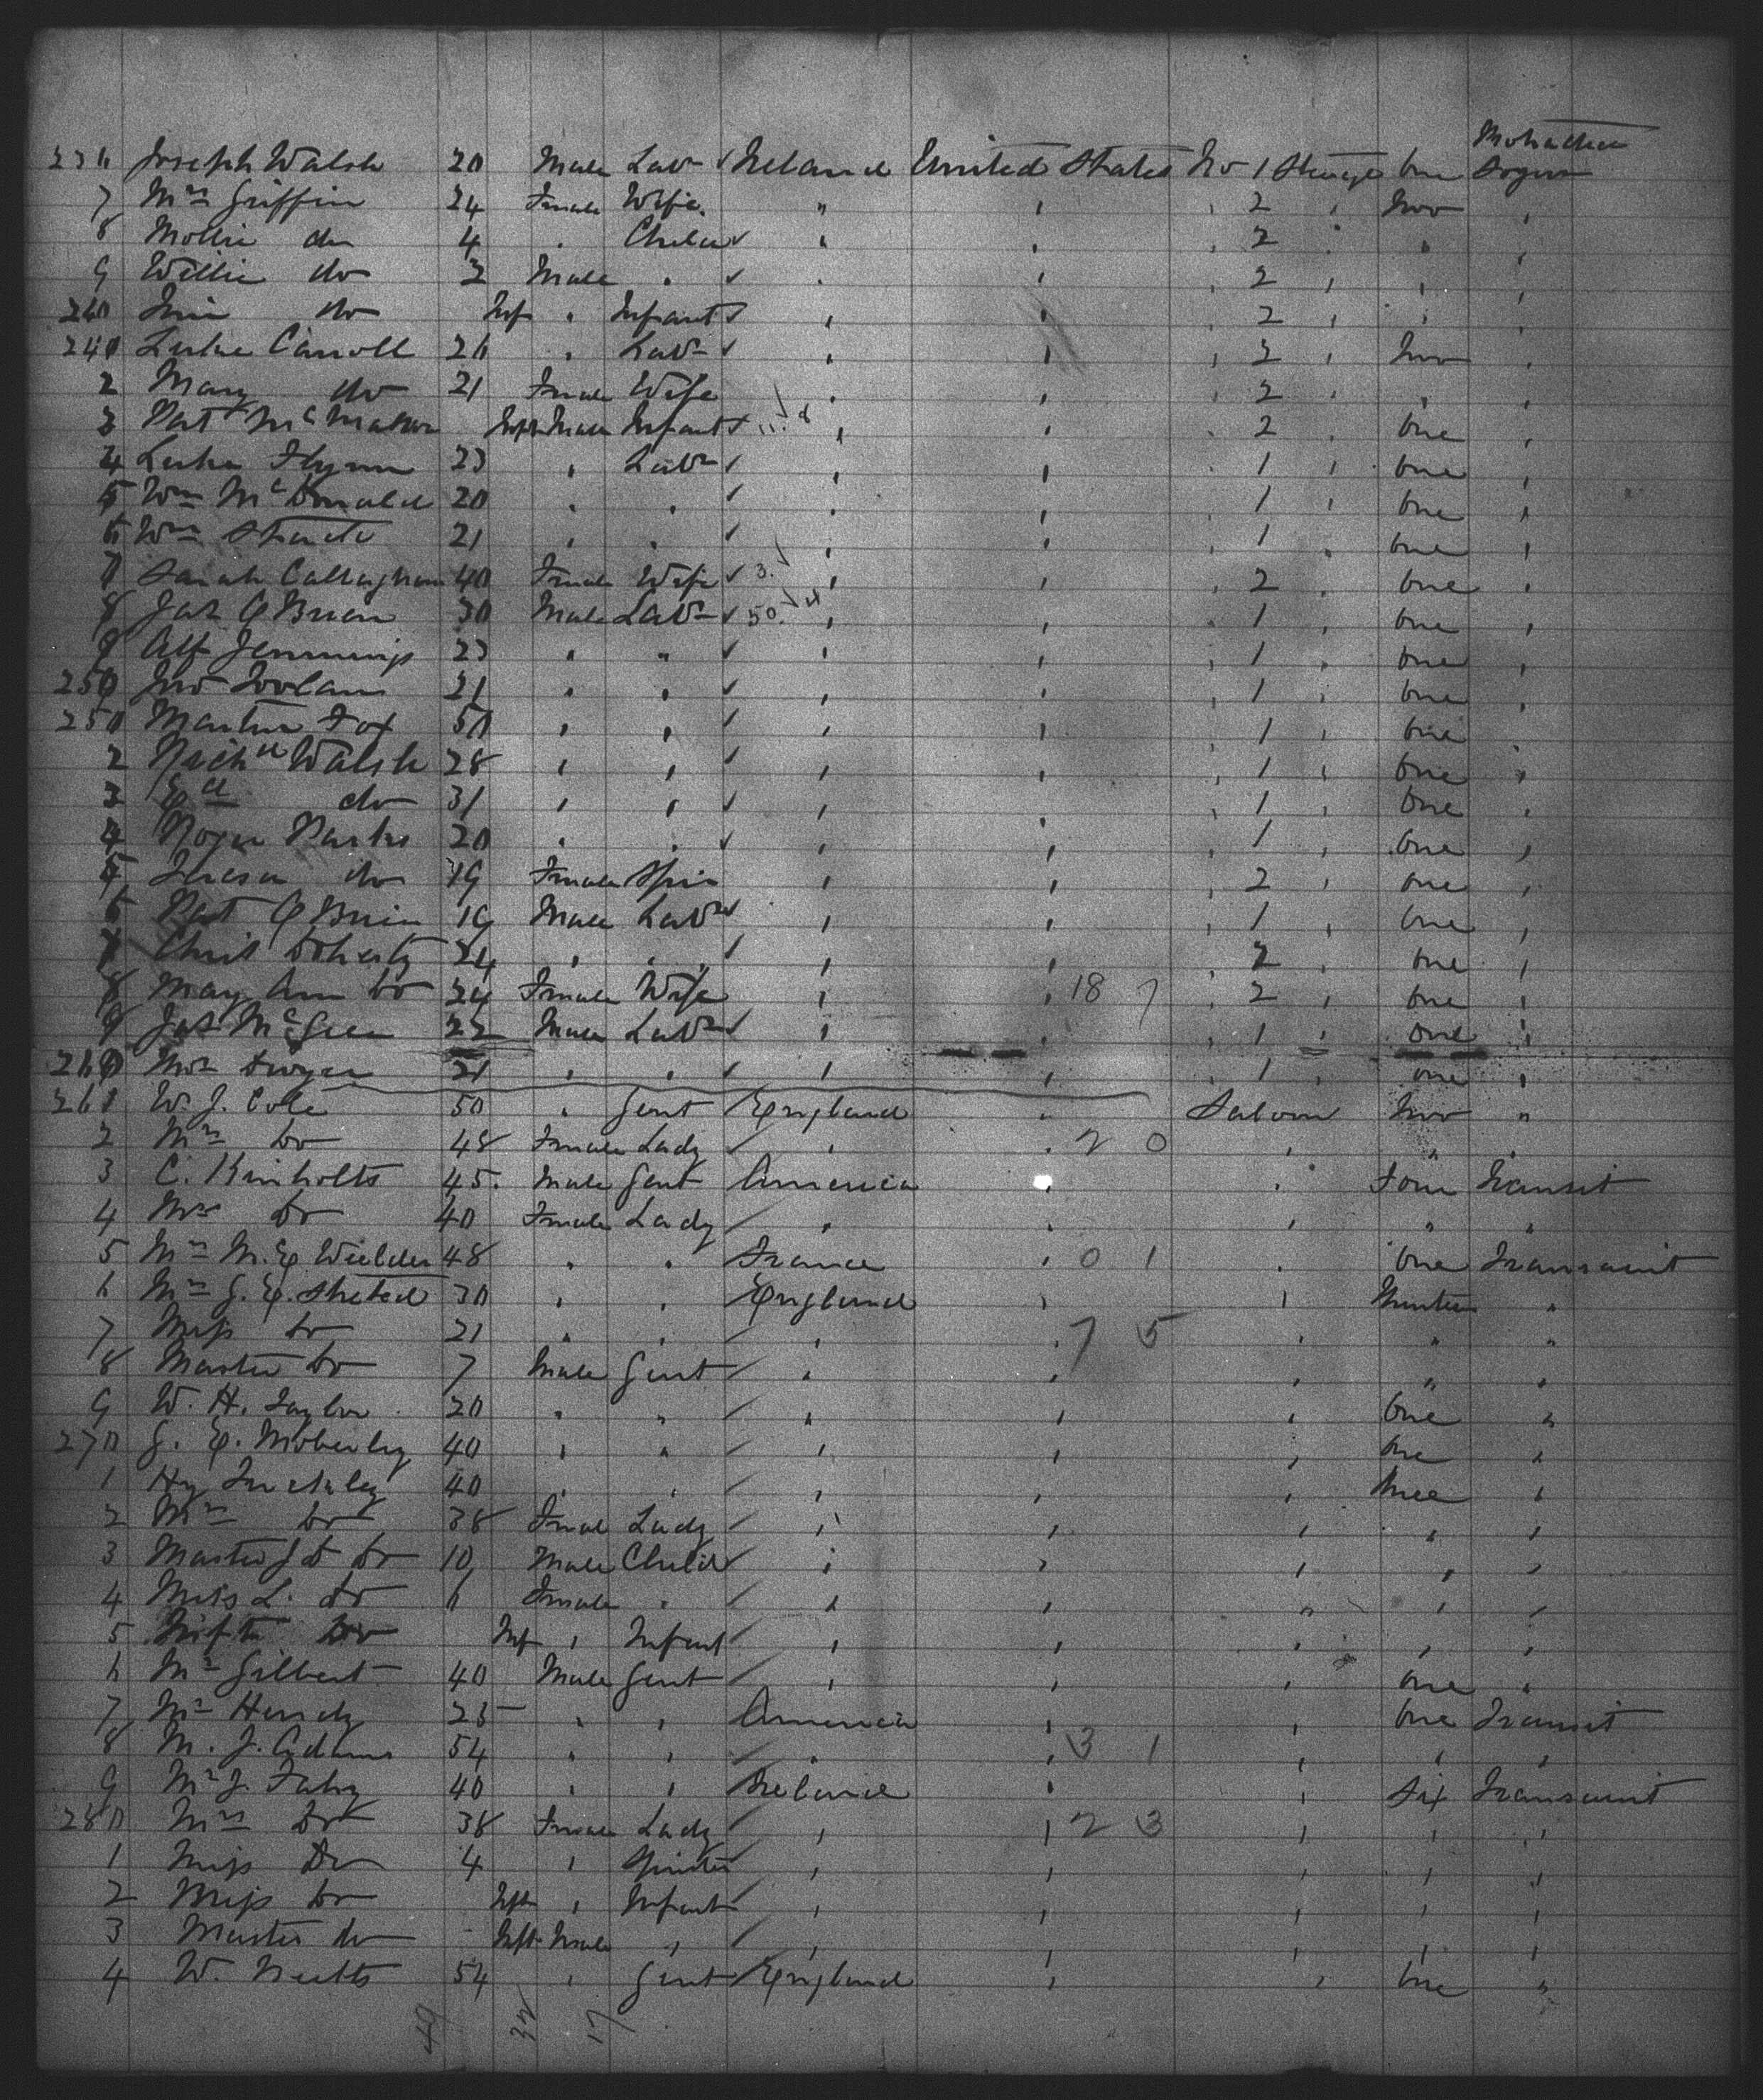 Protracted
236 Joseph Walsh 20 Male Labr Ireland United States No 1 Steerage One Sogor
7 Mrs Griffin 24 Female Wife " " 2 " Two "
8 Mollie do 4 " Child " " 2 " " "
9 Willie do 2 Male " " " 2 " " "
240 do Inf " Infant " " 2 " " "
240 Luke Carroll 26 " Labr " " 2 " Two "
2 Mary do 21 Female Wife " " 2 " " "
3 Pat McMahon Inft Male Infant " " 2 " One "
4 Luke Flynn 23 " Labr " " 1 " One "
5 Wm McDonald 20 " " " " 1 " One "
6 Wm 21 " " " " 1 " One "
7 Sarah Callaghan 40 Female Wife 3 " " 2 " One "
8 Jas O'Brien 30 Male Labr 50 " " 1 " One "
9 Alf Jennings 23 " " " " 1 " One "
250 Jno Toolan 21 " " " " 1 " One "
250 Martin Fox 50 " " " " 1 " One "
2 Richd Walsh 28 " " " " 1 " One "
3 Ed do 31 " " " " 1 " One "
4 Roger Parks 20 " " " " 1 " One "
5 Teresa do 19 Female Spin " " 2 " One "
6 Pat O'Brien 19 Male Labr " " 1 " One "
7 Christ Doherty 24 " " " " 2 " One "
8 Mary Ann Do 24 Female Wife " " 18 7 " 2 " One "
9 Jas McGee 22 Male Labr " " 1 " One "
260 Dwyer 21 " " " " 1 " One "
261 W. J. Cole 50 " Gent England " Saloon Two "
2 Mrs Do 48 Female Lady " " 2 0 " " "
3 C. Kinholts 45 Male Gent America " " Four Transit
4 Mrs Do 40 Female Lady " " " " "
5 Mrs M. E. Wielder 48 " " France " 0 1 " One Transcint
6 Mrs G. E. 30 " " England " " "
7 Miss Do 21 " " " " 7 5 " " "
8 Master Do 7 Male Gent " " " " "
9 W. H. Taylor 20 " " " " " One "
270 G. E. Moberley 40 " " " " " One "
1 Hy 40 " " " " " Three "
2 Mrs Do 38 Femal Lady " " " " "
3 Master J D Do 10 Male Child " " " " "
4 Miss L. Do 6 Female " " " " " "
5 Inft Do Inf " Infant " " " " "
6 Mr Gilbert 40 Male Gent " " " One "
7 Mr Hendy 25 " " America " " One Transit
8 M. J. Adams 54 " " " " 3 1 " " "
9 Mr J. Fahy 40 " " Ireland " " Six Transcint
280 Mrs Do 38 Female Lady " " 2 3 " " "
1 Miss Do 4 " Spinster " " " " "
2 Miss Do Inft " Infant " " " " "
3 Master Do Inft Male " " " " " "
4 W. 54 " Gent England " " One "
49 32 17